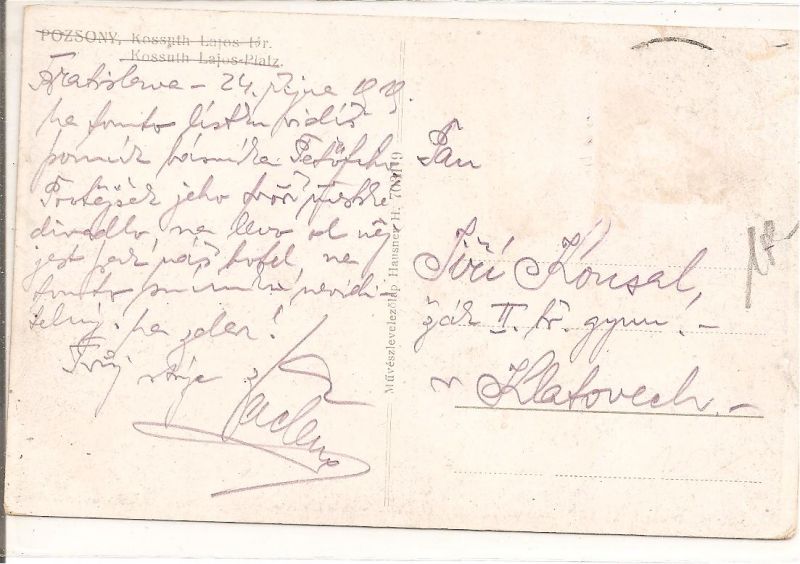 POZSONY, Kossuth Lajos-tér.
Kossuth Lajos-Platz.
Bratislava - 24. října 1919.
Na tomto lístku vidíš
pomník básníka Petöfiho
Protějšek jeho tvoří městské
divadlo na levo od něj
jest zas náš hotel, na
tomto snímku nevidi-
telný. Na zdar!
Tvůj strýc
Művészlevelezőlap Hausner H. 703/19
Pan
Jiří Konsal,
žák II. tř. gymn. -
v Klatovech. -